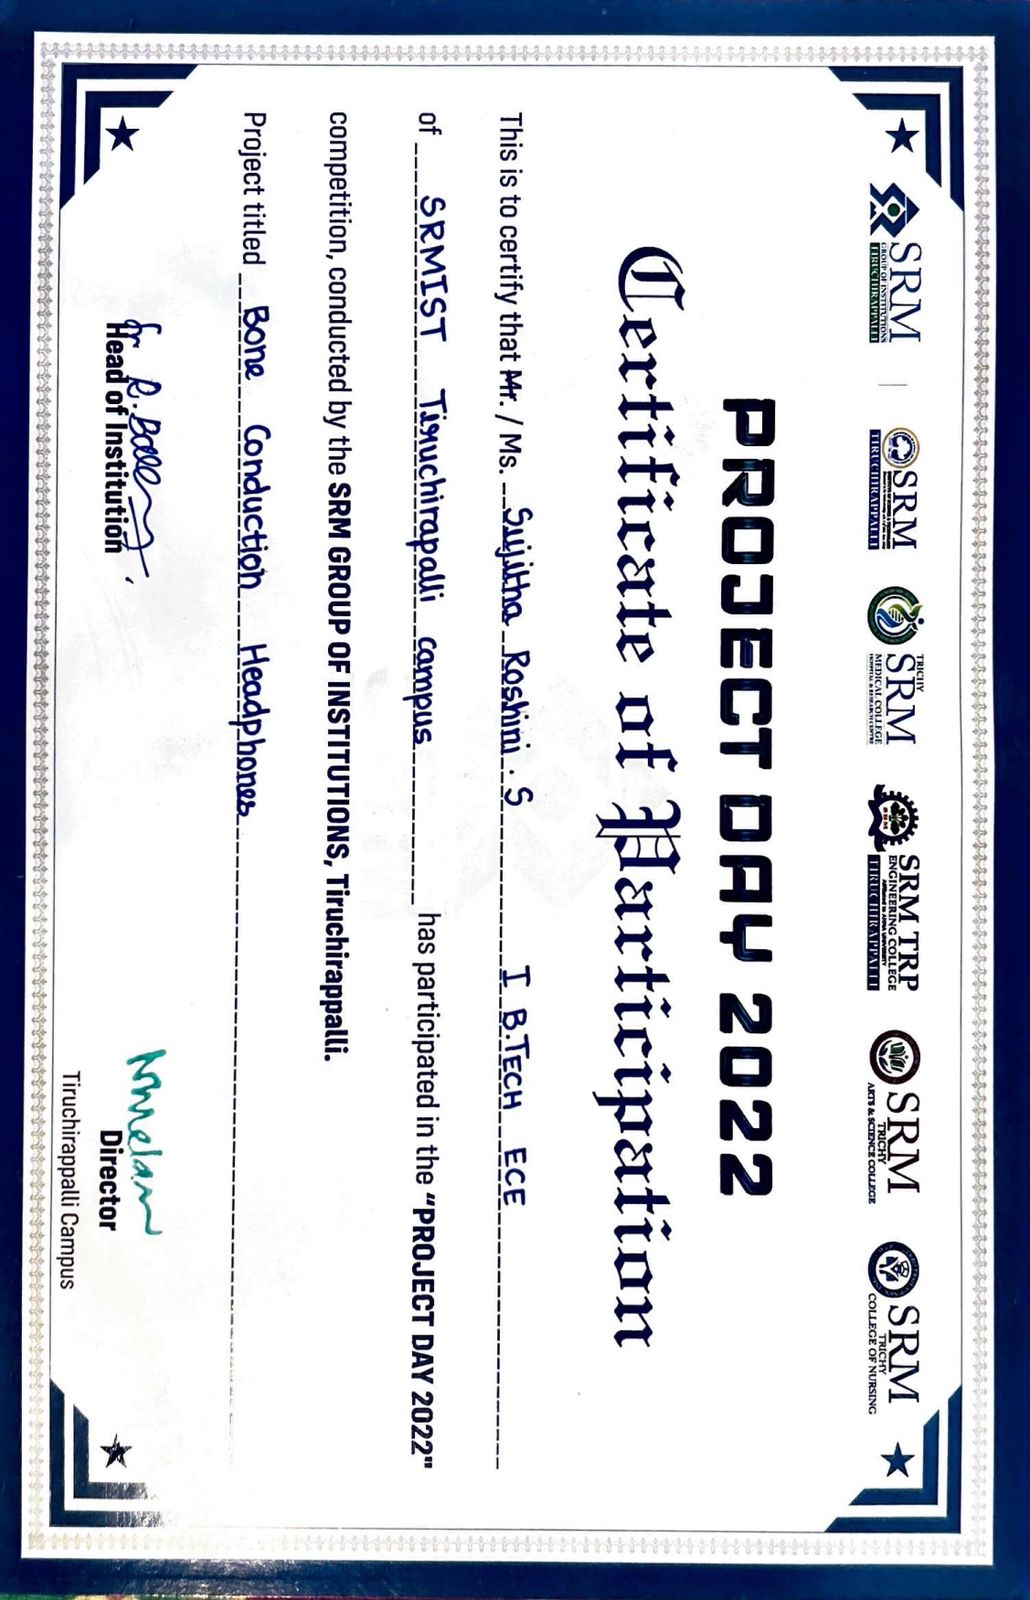 SRM
GROUP OF INSTITUTIONS
TIRUCHIRAPPALLI
SRM
TIRUCHIRAPPALLI
TRICHY
SRM
MEDICAL COLLEGE
HOSPITAL & RESEARCH CENTRE
SRM TRP
ENGINEERING COLLEGE
TIRUCHIRAPPALLI
SRM
TRICHY
ARTS & SCIENCE COLLEGE
SRM
TRICHY
COLLEGE OF NURSING
PROJECT DAY 2022
Certificate of Participation
This is to certify that Mr. / Ms. Sujitha Roshini . S I B.TECH ECE
of SRMIST Tiruchirapalli campus has participated in the "PROJECT DAY 2022"
competition, conducted by the SRM GROUP OF INSTITUTIONS, Tiruchirappalli.
Project titled Bone Conduction Headphones
Head of Institution
Director
Tiruchirappalli Campus